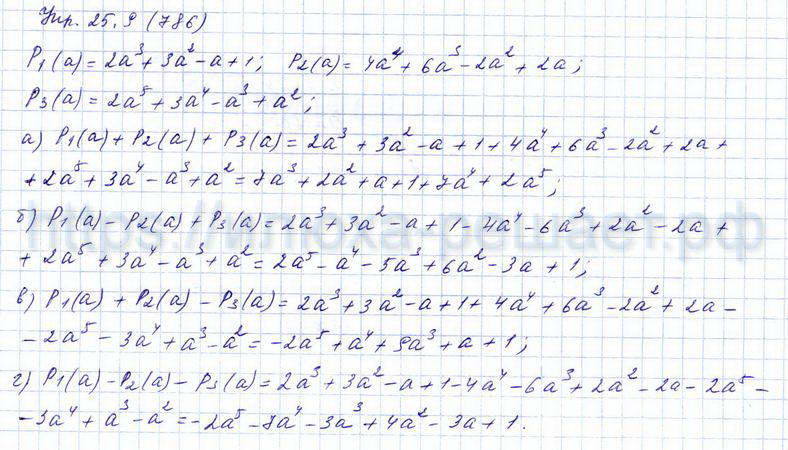 Упр. 25.9 (786)
P₁(a) = 2a³ + 3a² - a + 1; P₂(a) = 4a⁴ + 6a³ - 2a² + 2a;
P₃(a) = 2a⁵ + 3a⁴ - a³ + a²;
а) P₁(a) + P₂(a) + P₃(a) = 2a³ + 3a² - a + 1 + 4a⁴ + 6a³ - 2a² + 2a +
+ 2a⁵ + 3a⁴ - a³ + a² = 7a³ + 2a² + a + 1 + 7a⁴ + 2a⁵;
б) P₁(a) - P₂(a) + P₃(a) = 2a³ + 3a² - a + 1 - 4a⁴ - 6a³ + 2a² - 2a +
+ 2a⁵ + 3a⁴ - a³ + a² = 2a⁵ - a⁴ - 5a³ + 6a² - 3a + 1;
в) P₁(a) + P₂(a) - P₃(a) = 2a³ + 3a² - a + 1 + 4a⁴ + 6a³ - 2a² + 2a -
- 2a⁵ - 3a⁴ + a³ - a² = -2a⁵ + a⁴ + 9a³ + a + 1;
г) P₁(a) - P₂(a) - P₃(a) = 2a³ + 3a² - a + 1 - 4a⁴ - 6a³ + 2a² - 2a - 2a⁵ -
- 3a⁴ + a³ - a² = -2a⁵ - 7a⁴ - 3a³ + 4a² - 3a + 1.